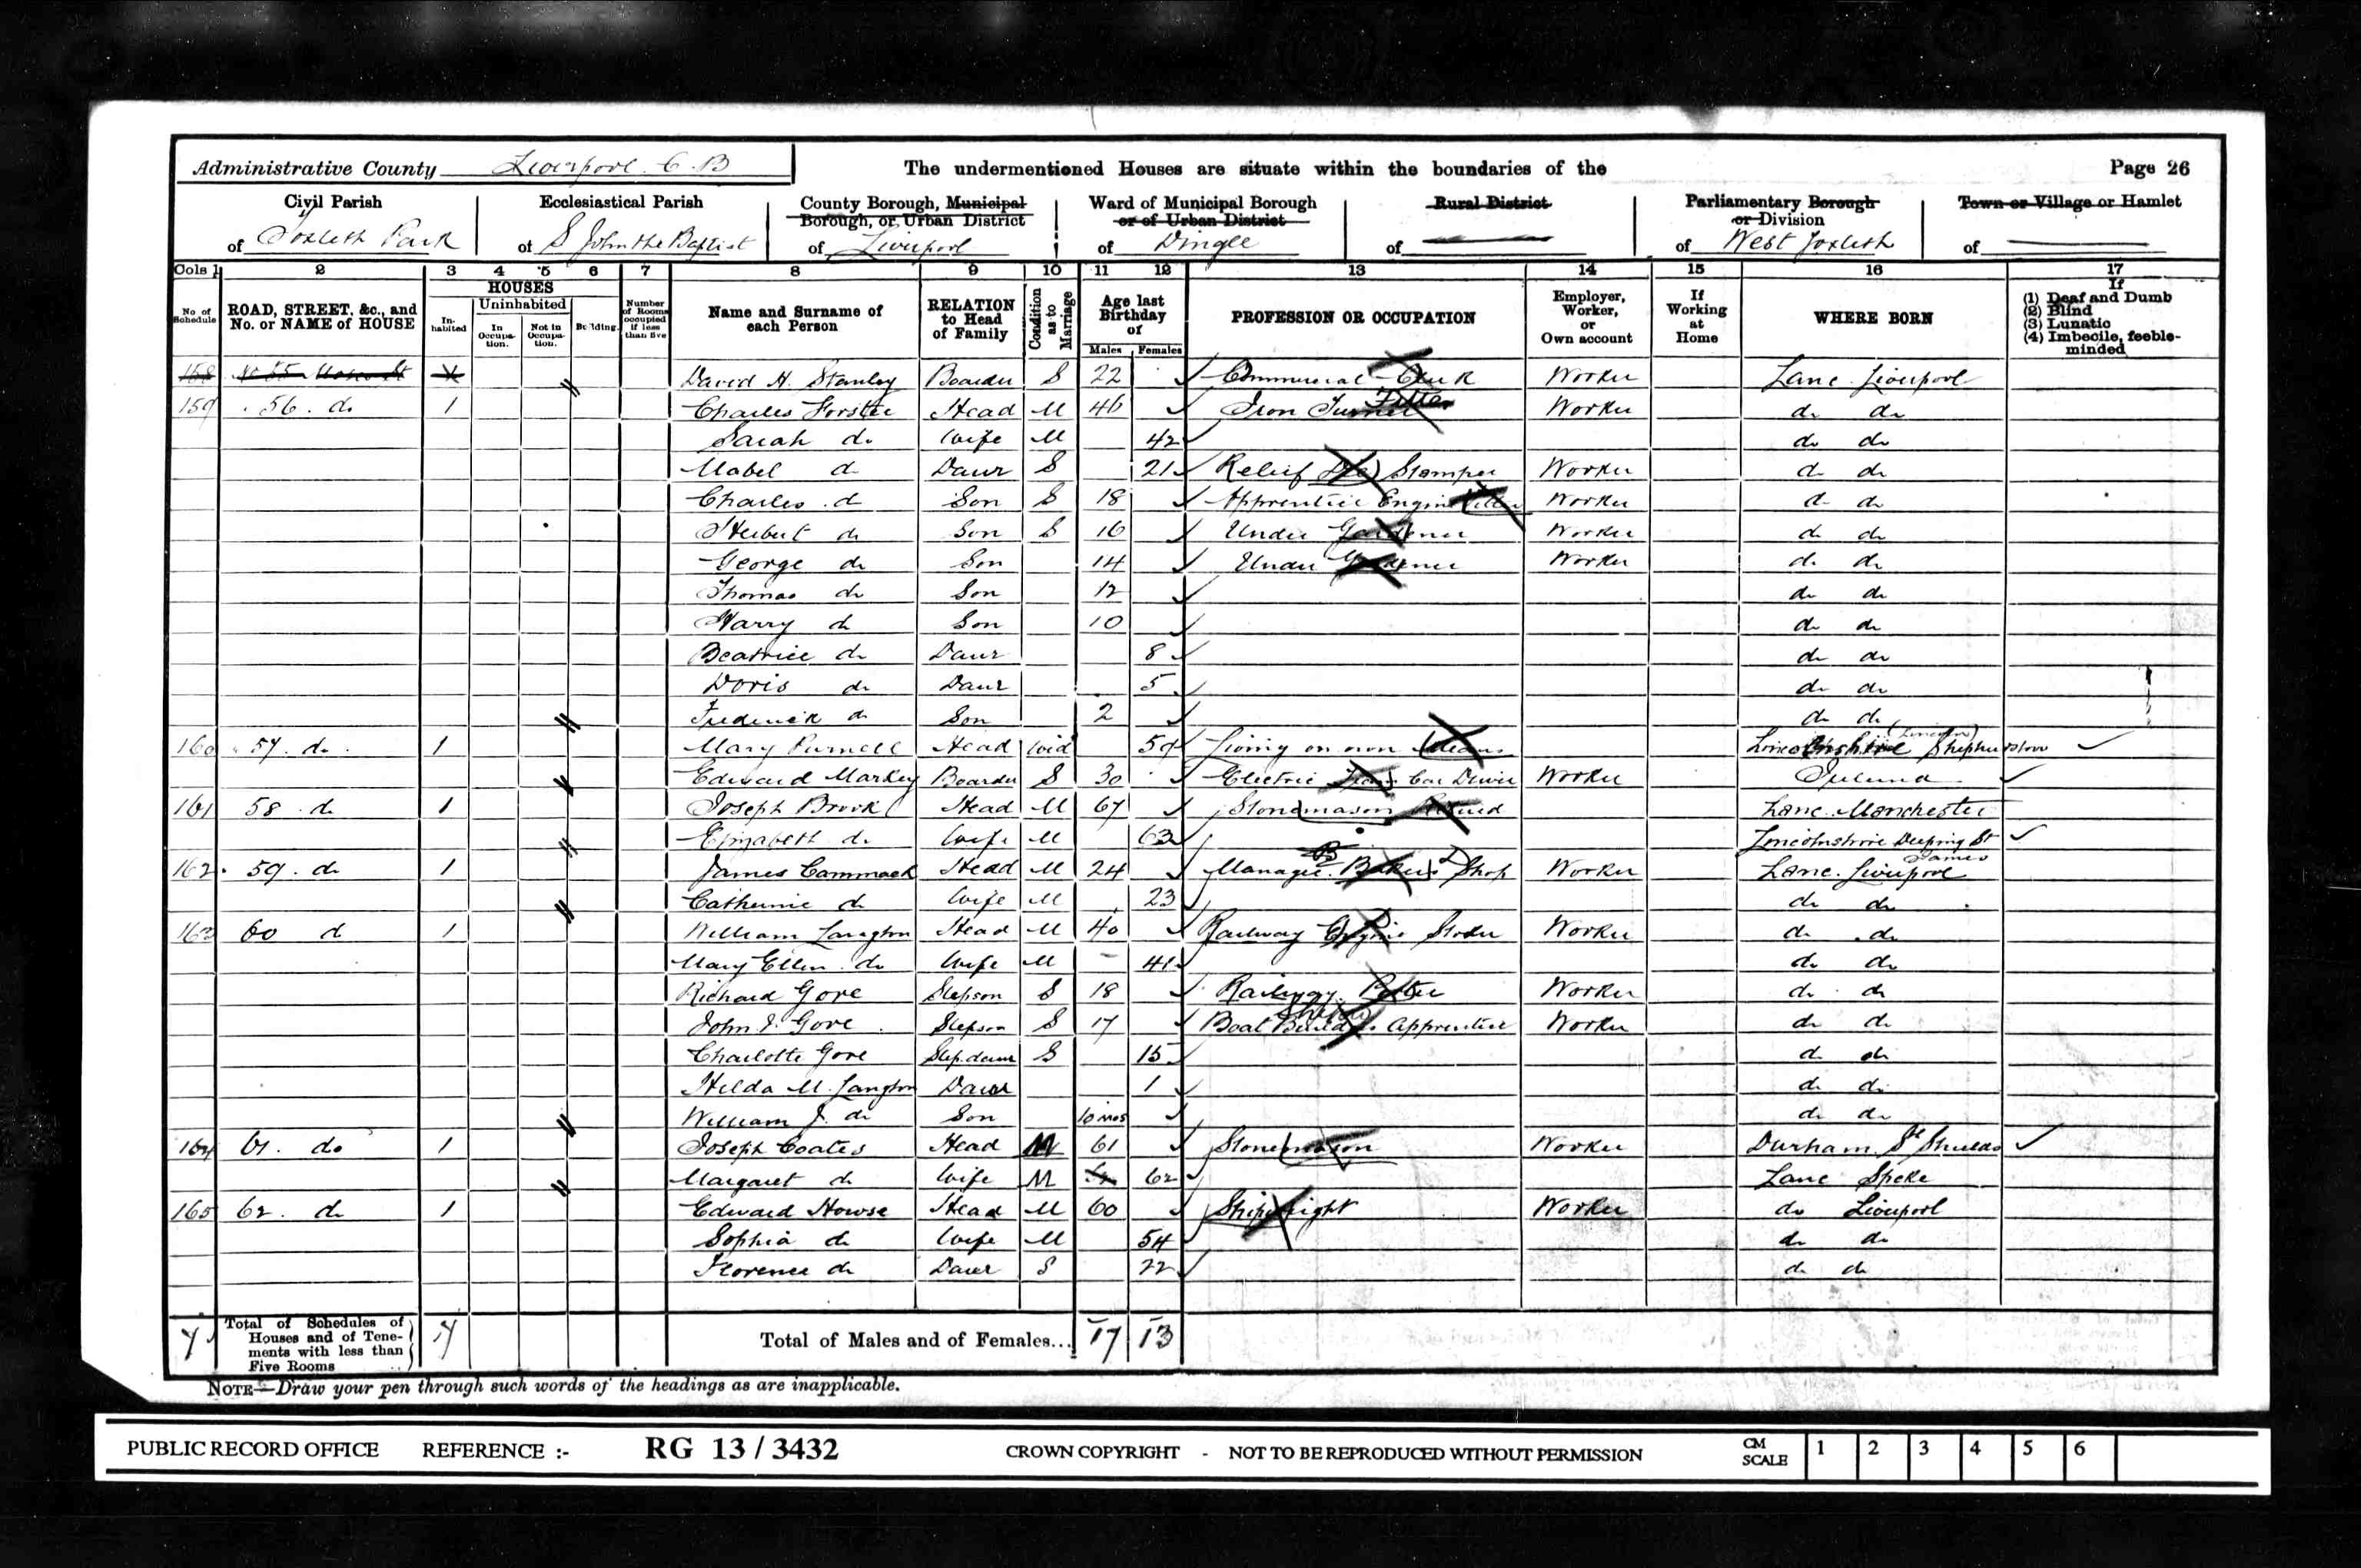 Administrative County Liverpool C.B The undermentioned Houses are situate within the boundaries of the Page 26
Civil Parish of Toxteth Park
Ecclesiastical Parish of St John the Baptist
County Borough, Municipal Borough, or Urban District of Liverpool
Ward of Municipal Borough or of Urban District of Dingle
Rural District of
Parliamentary Borough or Division of West Toxteth
Town or Village or Hamlet of
Cols 1 2 3 4 5 6 7 8 9 10 11 12 13 14 15 16 17
No of Schedule
ROAD, STREET, &c., and No. or NAME of HOUSE
HOUSES
In-habited
Uninhabited
In Occupa-tion.
Not in Occupa-tion.
Building.
Number of Rooms occupied if less than five
Name and Surname of each Person
RELATION to Head of Family
Condition as to Marriage
Age last Birthday of
Males Females
PROFESSION OR OCCUPATION
Employer, Worker, or Own account
If Working at Home
WHERE BORN
If
(1) Deaf and Dumb
(2) Blind
(3) Lunatic
(4) Imbecile, feeble-minded
158 No 55 St David H. Stanley Boarder S 22 Commercial Clerk Worker Lanc. Liverpool
159 56 do 1 Charles Forster Head M 46 Iron Turner Fitter Worker do do
Sarah do Wife M 42 do do
Mabel do Daur S 21 Relief Stamper Worker do do
Charles do Son S 18 Apprentice Engine Fitter Worker do do
Herbert do Son S 16 Under Gardener Worker do do
George do Son 14 Under Gardener Worker do do
Thomas do Son 12 do do
Harry do Son 10 do do
Beatrice do Daur 8 do do
Doris do Daur 5 do do
Frederick do Son 2 do do
160 57 do 1 Mary Purnell Head Wid 59 Living on own Means Lincolnshire (Lincoln)
Edward Markey Boarder S 30 Electric Tram Car Driver Worker Ireland
161 58 do 1 Joseph Brook Head M 67 Stonemason Retired Lanc. Manchester
Elizabeth do Wife M 63 Lincolnshire Deeping St James
162 59 do 1 James Cammack Head M 24 Manager Bakers Shop Worker Lanc. Liverpool
Catherine do Wife M 23 do do
163 60 do 1 William Langton Head M 40 Railway Engine Stoker Worker do do
Mary Ellen do Wife M 41 do do
Richard Gore Stepson S 18 Railway Porter Worker do do
John J. Gore Stepson S 17 Boat Builders Apprentice Worker do do
Charlotte Gore Stepdaur S 15 do do
Hilda M. Langton Daur 1 do do
William J. do Son 10 mos do do
164 61 do 1 Joseph Coates Head M 61 Stonemason Worker Durham Sth Shields
Margaret do Wife M 62 Lanc Speke
165 62 do 1 Edward Howse Head M 60 Shipwright Worker do Liverpool
Sophia do Wife M 54 do do
Florence do Daur S 22 do do
7 Total of Schedules of Houses and of Tene-ments with less than Five Rooms 7 Total of Males and of Females... 17 13
NOTE—Draw your pen through such words of the headings as are inapplicable.
PUBLIC RECORD OFFICE REFERENCE :- RG 13 / 3432 CROWN COPYRIGHT - NOT TO BE REPRODUCED WITHOUT PERMISSION CM SCALE 1 2 3 4 5 6